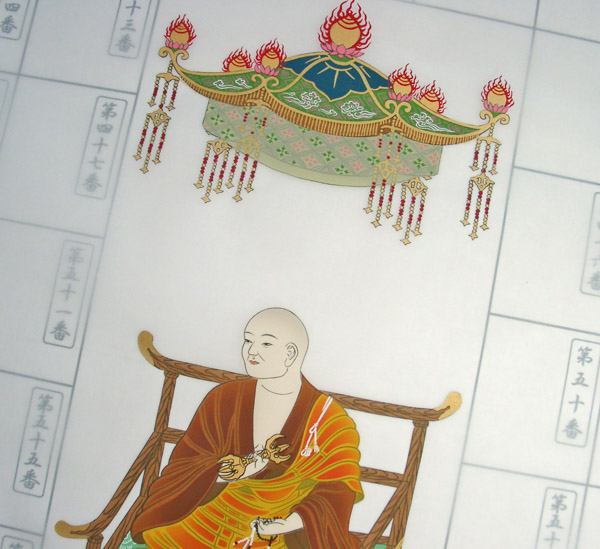 四番
十三番
第四十七番
第五十一番
第五十五番
第五十番
第五十